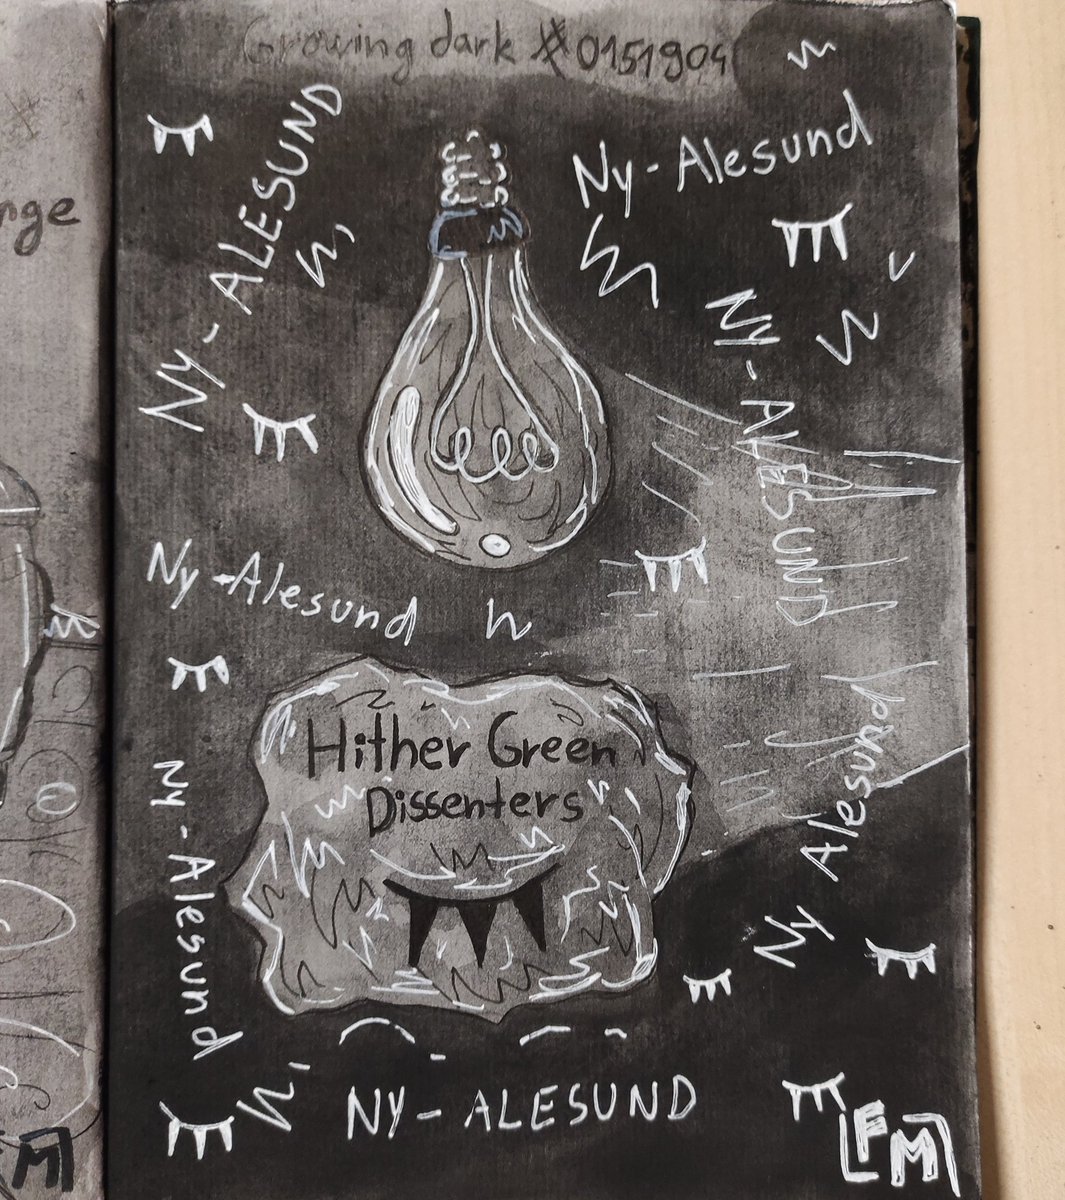 Growing dark #0151904
nge
Ny-ALESUND
Ny-Alesund
Ny-ALESUND
Ny-Alesund
Hither Green
Dissenters
Ny-Alesund
Ny Alesund
NY-ALESUND
FM
M